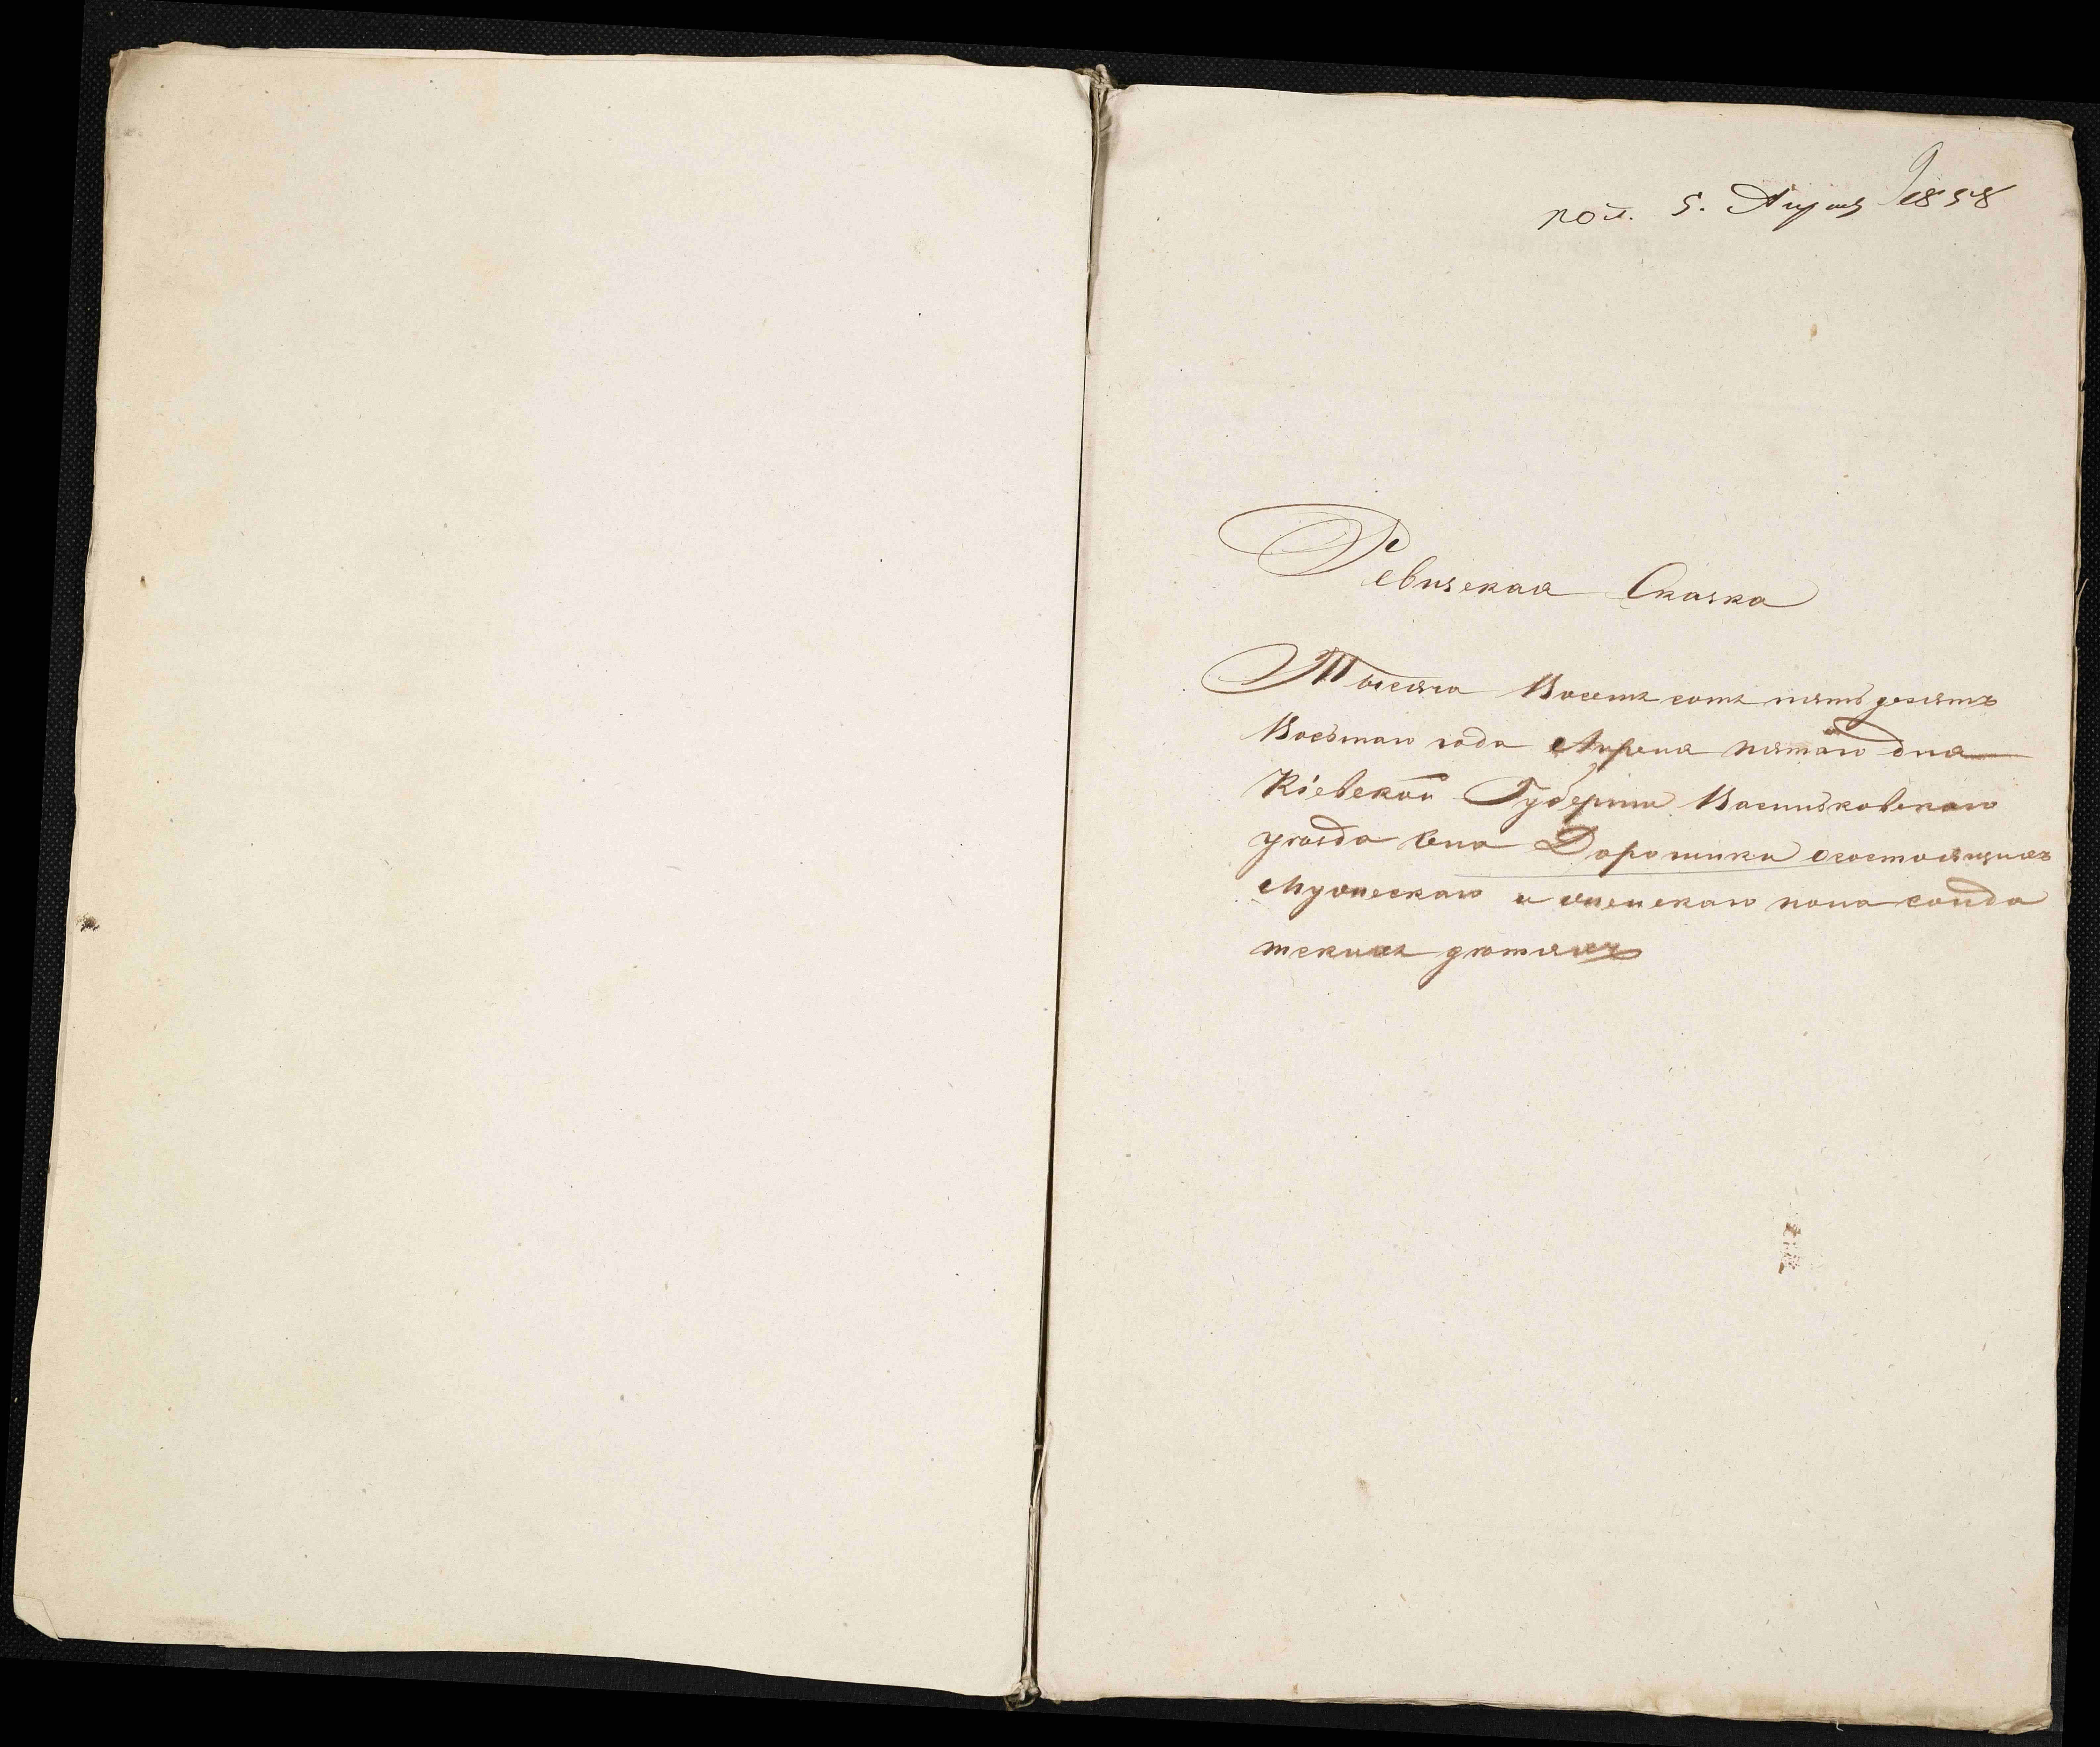 пол. 5. Апреля 1858
Ревизская Сказка
Тысяча Восемь сотъ пятьдесятъ
Восьмаго года Апреля пятаго дня
Кіевской Губерніи Васильковскаго
уезда села Дорошики осостоящихъ
Мужескаго и женскаго пола солда
тскихъ детяхъ